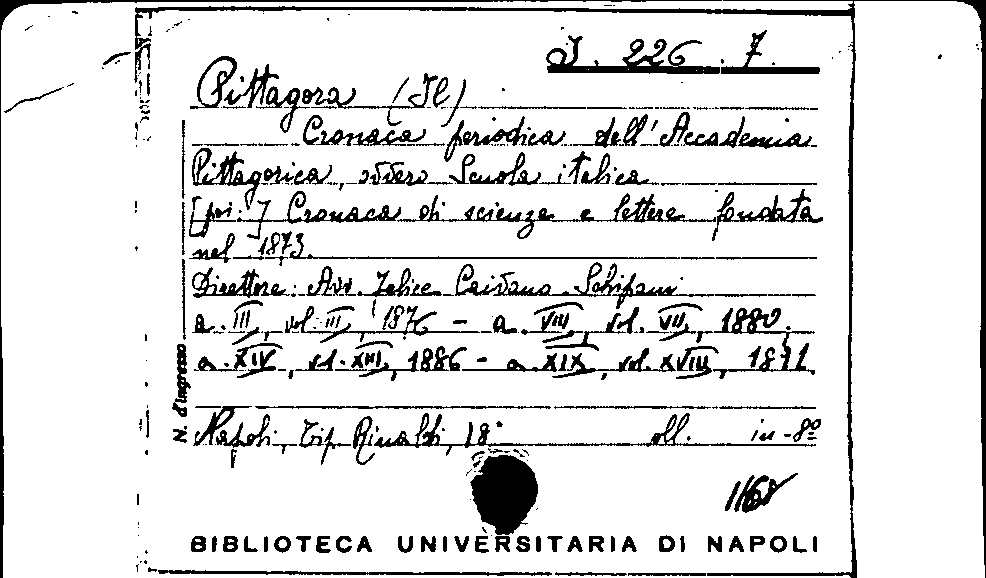 J. 226. 7.
Pittagora (Il)
Cronaca periodica dell'Accademia
Pittagorica, ovvero Scuola italica
[poi:] Cronaca di scienze e lettere fondata
nel 1873.
Direttore: Avv. Felice Caivano Schipani
a. III, vol. III, 1876 - a. VIII, vol. VII, 1880;
a. XIV, vol. XIII, 1886 - a. XIX, vol. XVIII, 1891.
Napoli, Tip. Rinaldi, 18 voll. in-8º
N. d'ingresso
1168
BIBLIOTECA UNIVERSITARIA DI NAPOLI